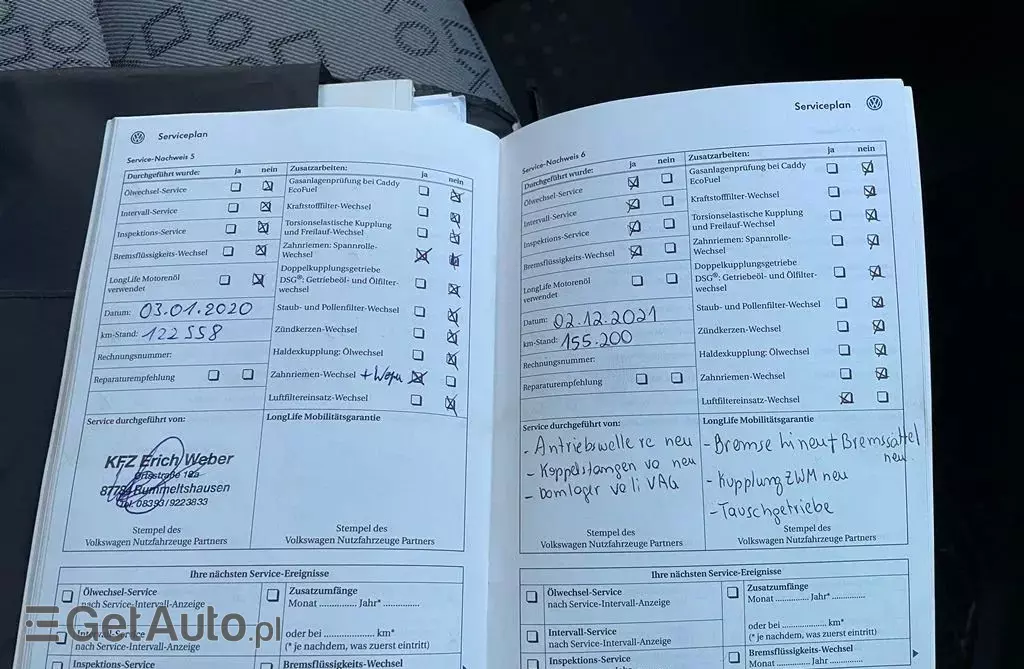 Serviceplan
Service-Nachweis 5
Durchgeführt wurde: ja nein
Ölwechsel-Service
Intervall-Service
Inspektions-Service
Bremsflüssigkeits-Wechsel
LongLife Motorenöl
verwendet
Datum: 03.01.2020
km-Stand: 122 558
Rechnungsnummer:
Reparaturempfehlung
Zusatzarbeiten: ja nein
Gasanlagenprüfung bei Caddy
EcoFuel
Kraftstofffilter-Wechsel
Torsionselastische Kupplung
und Freilauf-Wechsel
Zahnriemen: Spannrolle-
Wechsel
Doppelkupplungsgetriebe
DSG®: Getriebeöl- und Ölfilter-
wechsel
Staub- und Pollenfilter-Wechsel
Zündkerzen-Wechsel
Haldexkupplung: Ölwechsel
Zahnriemen-Wechsel
Luftfiltereinsatz-Wechsel
Service durchgeführt von:
KFZ Erich Weber
87784 Rummeltshausen
Tel. 08393/9223833
Stempel des
Volkswagen Nutzfahrzeuge Partners
LongLife Mobilitätsgarantie
Stempel des
Volkswagen Nutzfahrzeuge Partners
Ihre nächsten Service-Ereignisse
Ölwechsel-Service
nach Service-Intervall-Anzeige
Intervall-Service
nach Service-Intervall-Anzeige
Inspektions-Service
Zusatzumfänge
Monat .............. Jahr* ..............
oder bei .................... km*
(* je nachdem, was zuerst eintritt)
Bremsflüssigkeits-Wechsel
Serviceplan
Service-Nachweis 6
Durchgeführt wurde: ja nein
Ölwechsel-Service
Intervall-Service
Inspektions-Service
Bremsflüssigkeits-Wechsel
LongLife Motorenöl
verwendet
Datum: 02.12.2021
km-Stand: 155.200
Rechnungsnummer:
Reparaturempfehlung
Zusatzarbeiten: ja nein
Gasanlagenprüfung bei Caddy
EcoFuel
Kraftstofffilter-Wechsel
Torsionselastische Kupplung
und Freilauf-Wechsel
Zahnriemen: Spannrolle-
Wechsel
Doppelkupplungsgetriebe
DSG®: Getriebeöl- und Ölfilter-
wechsel
Staub- und Pollenfilter-Wechsel
Zündkerzen-Wechsel
Haldexkupplung: Ölwechsel
Zahnriemen-Wechsel
Luftfiltereinsatz-Wechsel
Service durchgeführt von:
- Antriebswelle re neu
- Koppelstangen va neu
- Domlager va li VAG
Stempel des
Volkswagen Nutzfahrzeuge Partners
LongLife Mobilitätsgarantie
- Bremse hi neu + Bremssattel
neu
- Kupplung ZWM neu
- Tauschgetriebe
Stempel des
Volkswagen Nutzfahrzeuge Partners
Ihre nächsten Service-Ereignisse
Ölwechsel-Service
nach Service-Intervall-Anzeige
Intervall-Service
nach Service-Intervall-Anzeige
Inspektions-Service
Zusatzumfänge
Monat .............. Jahr* ..............
oder bei .................... km*
(* je nachdem, was zuerst eintritt)
Bremsflüssigkeits-Wechsel
Monat .............. Jahr ..............
GetAuto.pl